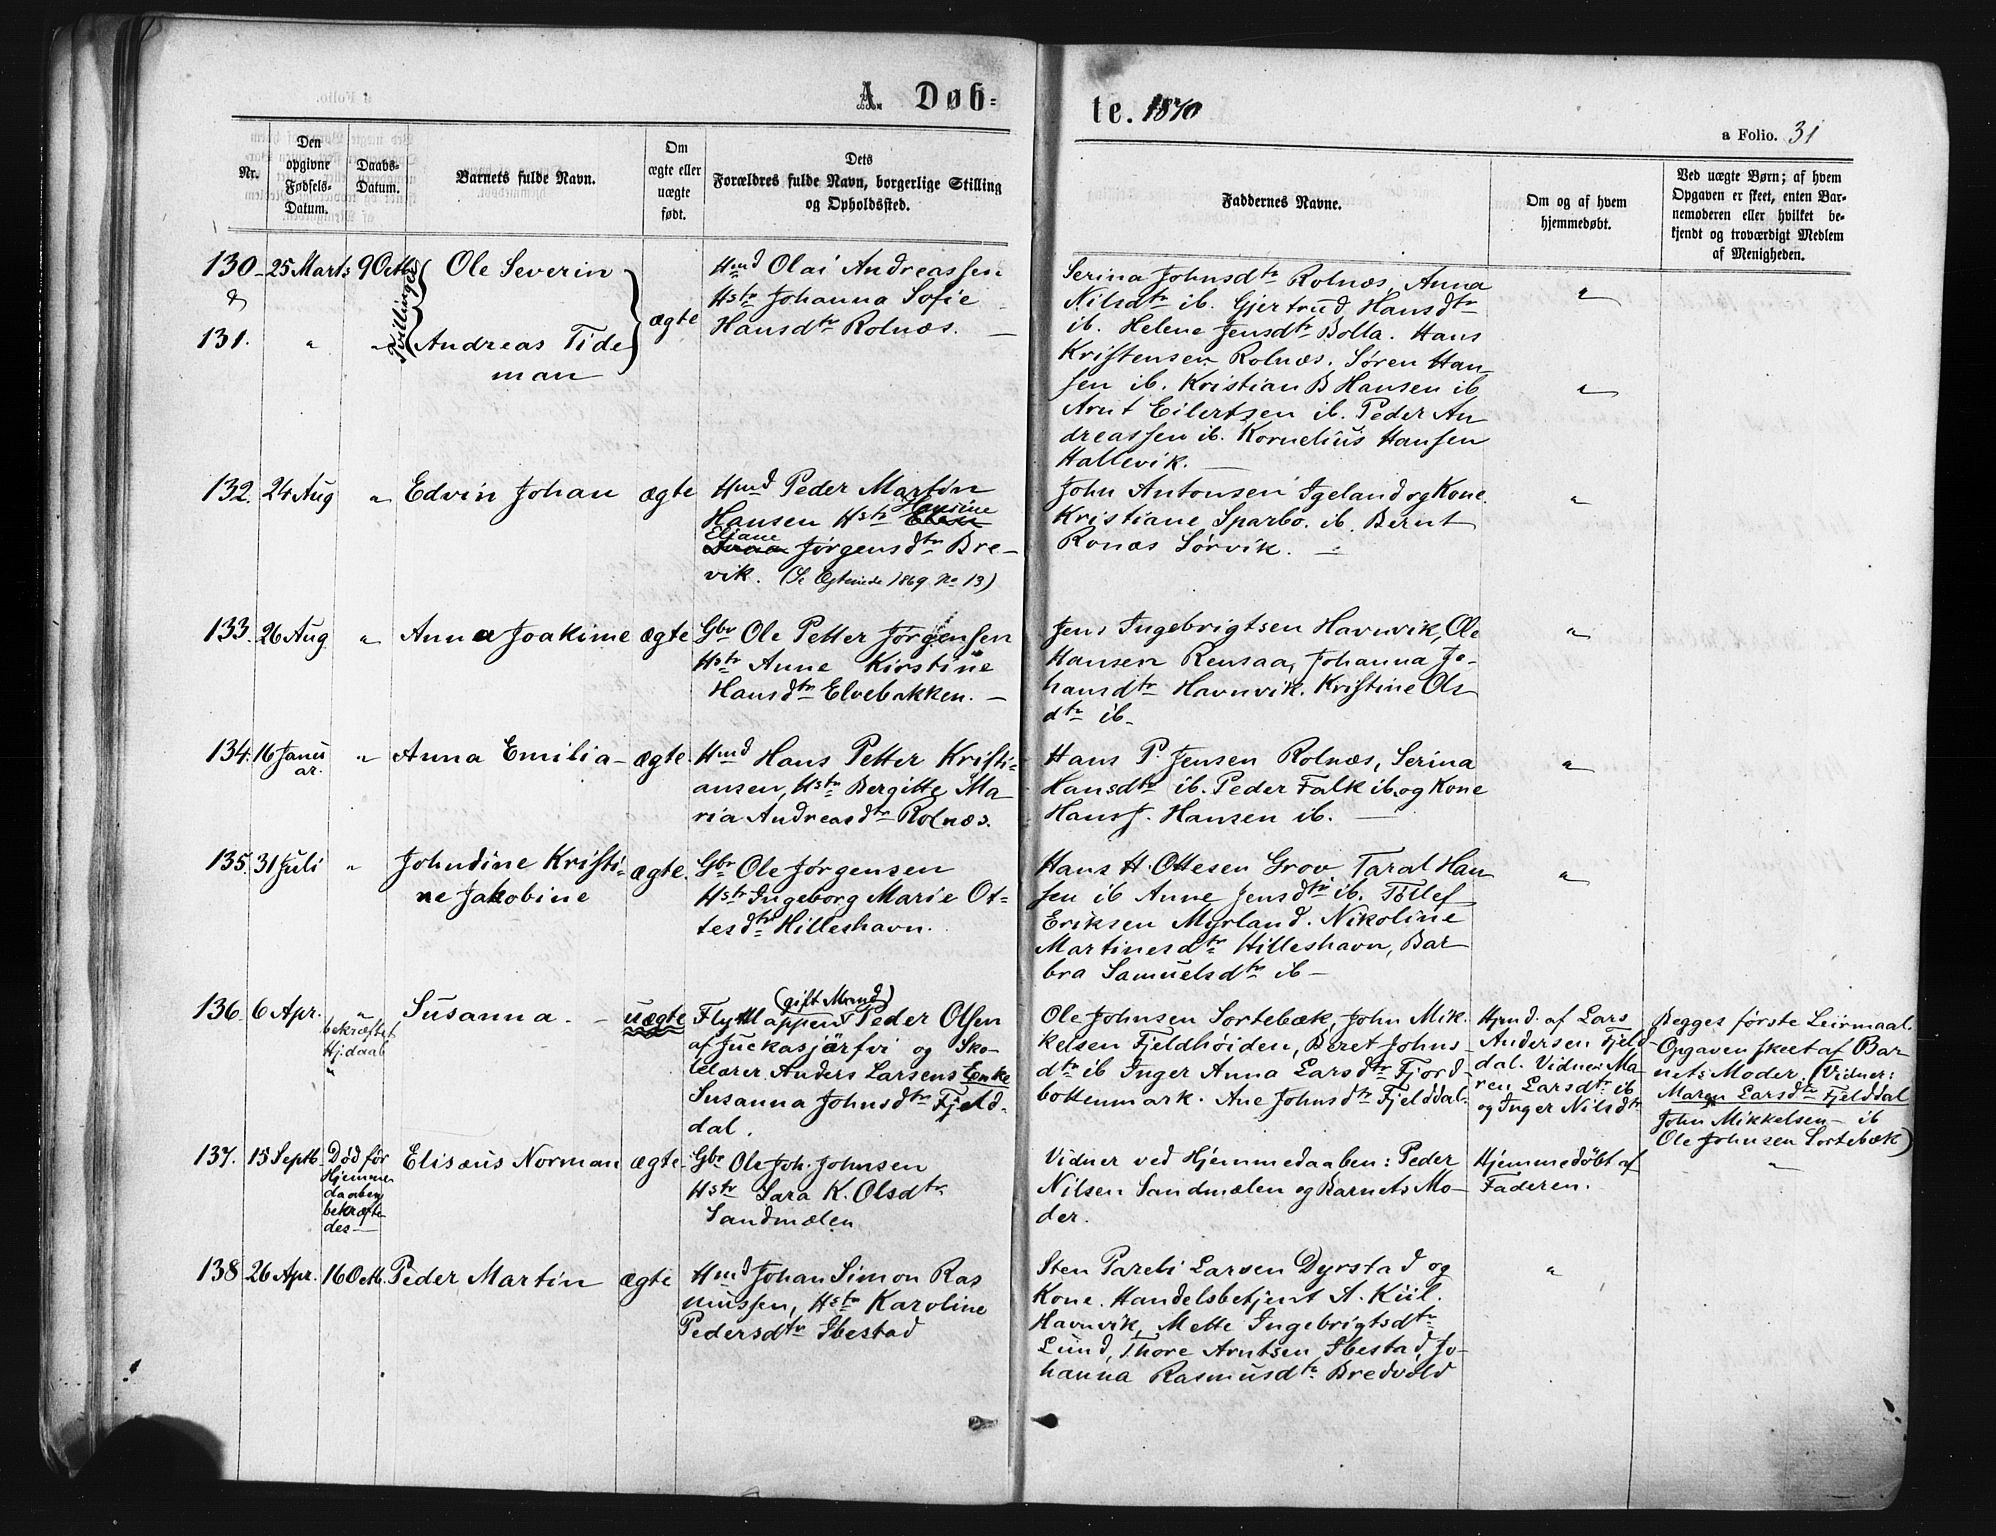 A. Døb=
te. 1870
a Folio. 31
Nr.
Den opgivne Fødsels-Datum.
Daabs-Datum.
Barnets fulde Navn.
Om ægte eller uægte født.
Dets Forældres fulde Navn, borgerlige Stilling og Opholdssted.
Faddernes Navne.
Om og af hvem hjemmedøbt.
Ved uægte Børn; af hvem Opgaven er skeet, enten Barnemoderen eller hvilket bekjendt og troværdigt Medlem af Menigheden.
130 25 Marts 9 Octb. Ole Severin
&
131. " " Andreas Tide
man
Tvillinger
ægte
Hmd Olai Andreassen
Hstr Johanna Sofie
Hansdtr Rolnæs. —
Serina Johnsdtr Rolnæs, Anna
Nilsdtr ib. Gjertrud Hansdtr
ib. Helene Jensdtr Bolla. Hans
Kristensen Rolnæs. Søren Han-
sen ib. Kristian B Hansen ib
Arnt Eilertsen ib. Peder An
dreassen ib. Kornelius Hansen
Hallevik. —
"
"
132. 24 Aug " Edvin Johan ægte
Hmd Peder Martin
Hansine
Hansen Hstr
Eliane
Jørgensdtr Bre-
vik. (Se Egteviede 1869 No 13)
John Antonsen Igeland og Kone.
Kristiane Sparbo. ib. Bernt
Ronæs Sørvik. —
"
133. 26 Aug " Anna Joakime ægte
Gbr Ole Petter Jørgensen
Hstr Anne Kirstine
Hansdtr Elvebakken. —
Jens Ingebrigtsen Havnvik, Ole
Hansen Rensaa, Johanna Jo-
hansdtr Havnvik. Kristine Ols
dtr ib.
"
134. 16 Janu
ar. " Anna Emilia — ægte.
Hmd Hans Petter Kristi-
ansen, Hstr Bergitte Ma-
ria Andreasdtr Rolnæs.
Hans P. Jensen Rolnæs, Serina
Hansdtr ib. Peder Falk ib. og Kone
Hans J. Hansen ib. —
"
135. 31 Juli " Johndine Kristi-
ne Jakobine ægte.
Gbr Ole Jørgensen
Hstr Ingeborg Marie Ot=
tesdtr Hilleshavn.
Hans H. Ottesen Grov. Taral Han
sen ib Anne Jensdtr ib. Tollef
Eriksen Myrland. Nikoline
Martinesdtr Hilleshavn, Bar
bra Samuelsdtr ib —
"
136. 6 Apr. "
bekræftet
Hj.daab
"
Susanna. — uægte
(gift Mand)
Flytlappen Peder Olsen
af Juckasjärfvi og Sko-
lelærer Anders Larsens Enke
Susanna Johnsdtr Fjeld-
dal.
Ole Johnsen Sortebæk, John Mik-
kelsen Fjeldhøiden, Beret Johns-
dtr ib Inger Anna Larsdtr Fjord-
bottenmark. Ane Johnsdtr Fjelddal.
Hjmd. af Lars
Andersen Fjeld-
dal. Vidner Ma-
ren Larsdtr ib
og Inger Nilsdtr
Begges første Leirmaal.
Opgaven skeet af Bar
nets Moder. (Vidner:
Maren Larsdtr Fjelddal
John Mikkelsen — ib
Ole Johnsen Sortebæk)
137. 15 Septb.
Død før
Hjemme
daaben
bekræfte
des —
Elisæus Norman ægte
Gbr Ole Joh. Johnsen
Hstr Sara K. Olsdtr
Sandmælen
Vidner ved Hjemmedaaben: Peder
Nilsen Sandmælen og Barnets Mo-
der.
Hjemmedøbt af
Faderen.
"
138 26 Apr. 16 Octb. Peder Martin ægte
Hmd Johan Simon Ras
mussen, Hstr Karoline
Pedersdtr Ibestad
Sten Pareli Larsen Dyrstad og
Kone. Handelsbetjent A. Kiil.
Havnvik, Mette Ingebrigtsdtr
Lund, Thore Arntsen Ibestad, Jo-
hanna Rasmusdtr Bredvold
"